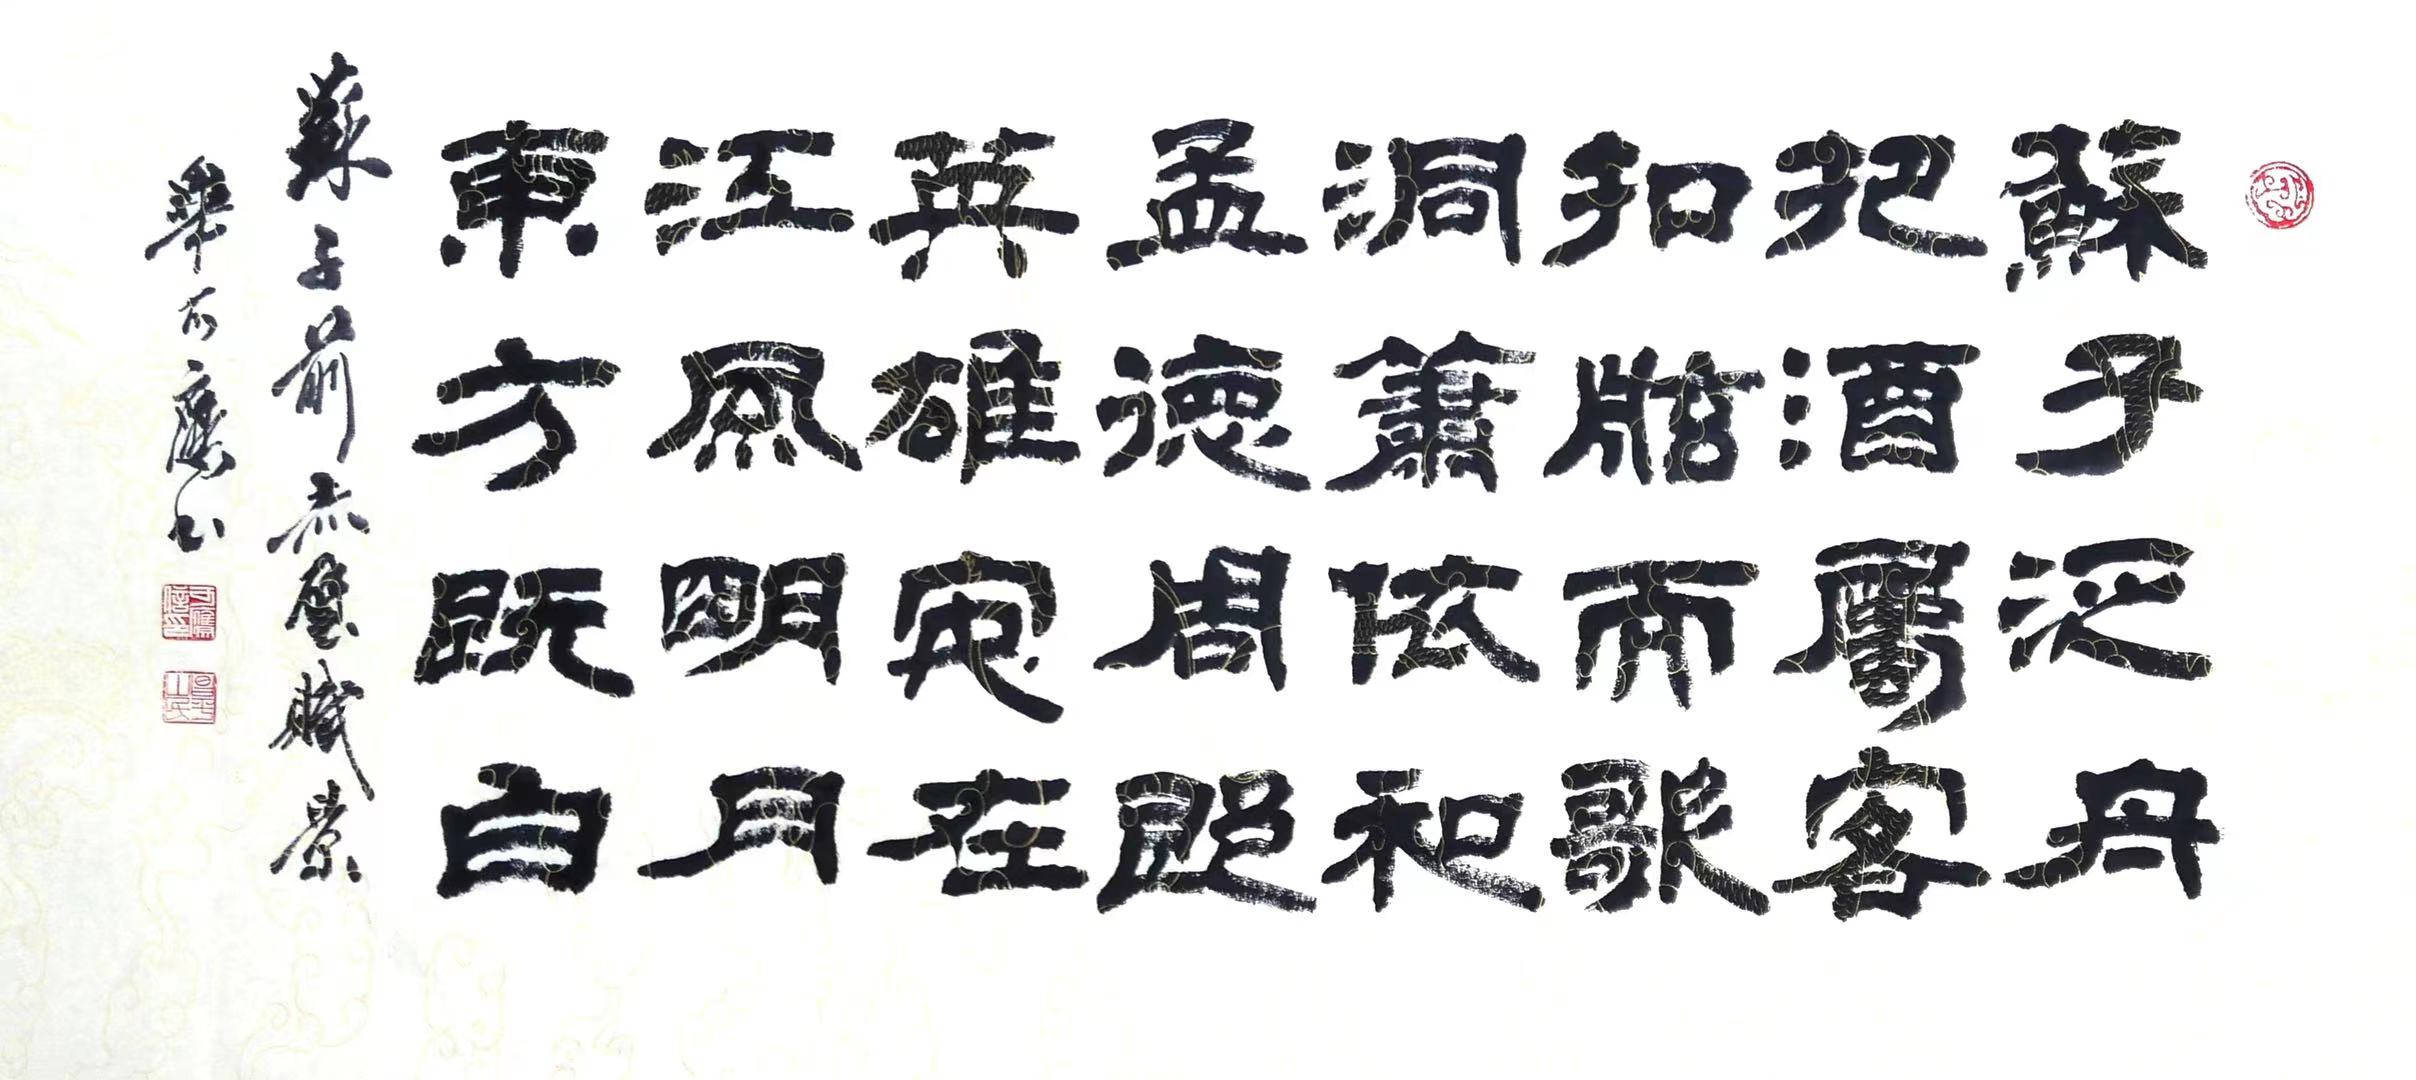 蘇子泛舟
把酒屬客
扣舷而歌
洞簫依和
孟德周郎
英雄安在
江風明月
東方既白
蘇子前赤壁賦景
可鷹书